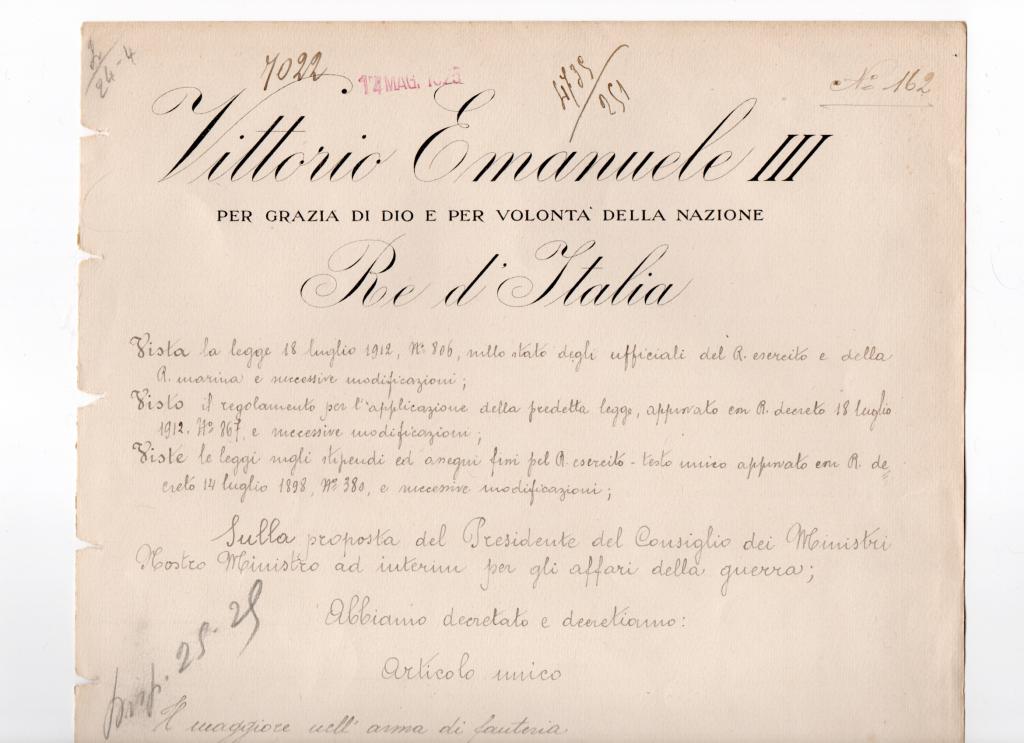 2/24-4
7022
17 MAG. 1925
4735/251
No 162
Vittorio Emanuele III
PER GRAZIA DI DIO E PER VOLONTA' DELLA NAZIONE
Re d'Italia
Vista la legge 18 luglio 1912, No 806, sullo stato degli ufficiali del R. esercito e della
R. marina e successive modificazioni;
Visto il regolamento per l'applicazione della predetta legge, approvato con R. decreto 18 luglio
1912. No 867, e successive modificazioni;
Viste le leggi sugli stipendi ed assegni fissi pel R. esercito - testo unico approvato con R. de=
creto 14 luglio 1898, No 380, e successive modificazioni;
Sulla proposta del Presidente del Consiglio dei Ministri
Nostro Ministro ad interim per gli affari della guerra;
Abbiamo decretato e decretiamo:
Articolo unico
25-25
Il maggiore nell'arma di fanteria